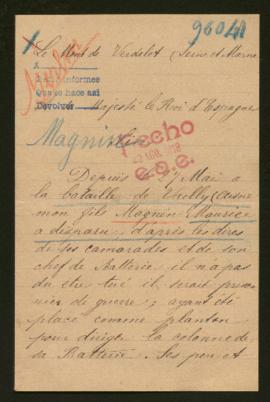 96041
Le Mont de Verdelot Seine et Marne
A
informes
Que se hace así
Devolver
Majesté le Roi d'Espagne
Magnin
Hecho
1918
Depuis le 27 Mai a
la bataille de Vailly (Aisne
mon fils Magnin Maurice
a disparu, d'après les dires
de ses camarades et de son
chef de Batterie il n'a pas
du etre tué il serait prison
nier de guerre; ayant été
placé comme planton
pour diriger la colonne de
sa Batterie. Ses et